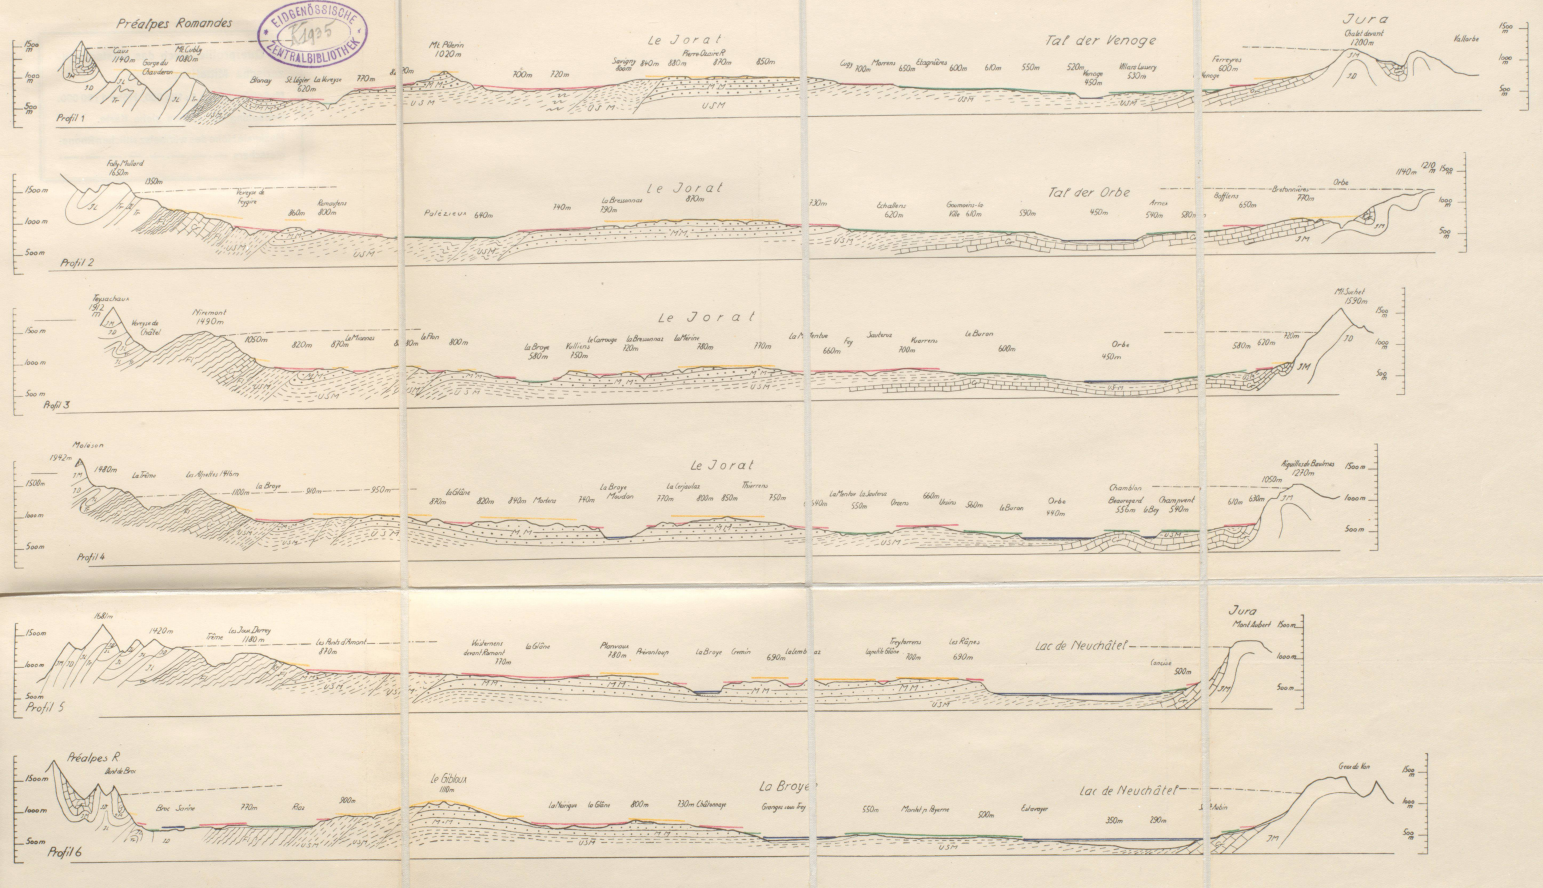 Préalpes Romandes
EIDGENÖSSISCHE
ZENTRALBIBLIOTHEK
1935
Le Jorat
Tal der Venoge
Jura
1500 m
1000 m
500 m
Caux
1140m
Gorge du
Chauderon
Mt. Cubly
1080m
Blonay
St. Légier
620m
La Veveyse
770m
Mt. Pèlerin
1020m
700m
720m
Savigny
840m
880m
870m
850m
Cugy
700m
Morrens
650m
Etagnières
600m
610m
550m
520m
Venoge
450m
Villars Lussery
530m
Ferreyres
600m
Venoge
Chalet devant
1200m
Vallorbe
USM
MM
Profil 1
Folly Mollard
1650m
1350m
Veveyse de
Feygire
860m
Remaufens
800m
Palézieux
640m
740m
La Bressonnaz
790m
Le Jorat
870m
730m
Echallens
620m
Goumoens-la
Ville 610m
590m
Tal der Orbe
450m
Arnex
540m
580m
650m
Bretonnières
770m
Orbe
1140m
1210
1500 m
1000 m
500 m
USM
MM
Profil 2
Teysachaux
1912
m
Veveyse de
Châtel
Niremont
1490m
1050m
820m
870m
Le Flon
800m
La Broye
580m
Vulliens
750m
Le Carrouge
La Bressonnaz
720m
La Mérine
780m
770m
Le Jorat
La Mentue
660m
Fey
Sauteruz
700m
Vuarrens
Le Buron
600m
Orbe
450m
580m
620m
720m
Mt. Suchet
1590m
1500 m
1000 m
500 m
USM
MM
Profil 3
Moléson
1942m
1480m
La Trême
Les Alpettes 1416m
1100m
La Broye
910m
950m
870m
La Glâne
820m
840m
Morlens
740m
La Broye
Moudon
770m
La Cerjaulaz
800m
850m
Thierrens
750m
Le Jorat
La Mentue
550m
La Sauteruz
Orzens
660m
Ursins
560m
Le Buron
Orbe
440m
Chamblon
Beauregard
556m
Le Bey
Champvent
540m
610m
630m
1050m
Aiguilles de Baulmes
1270m
1500 m
1000 m
500 m
USM
MM
Profil 4
1681m
1420m
Trême
Les Joux Derrey
1180m
Les Ponts d'Amont
870m
Vuisternens
devant Romont
770m
La Glâne
Planvaux
780m
Prévonloup
La Broye
Cremin
690m
La Lembaz
Treytorrens
La petite Glâne
700m
Les Râpes
690m
Lac de Neuchâtel
Concise
500m
Jura
Mont Aubert
1500 m
1000 m
500 m
USM
MM
Profil 5
Préalpes R
Dent de Broc
Broc
Sarine
770m
Riaz
900m
Le Gibloux
1110m
La Neirigue
la Glâne
800m
730m
Châtonnaye
La Broye
Granges sous Trey
550m
Montet p. Payerne
500m
Estavayer
Lac de Neuchâtel
350m
290m
St. Aubin
Creux du Van
1500 m
1000 m
500 m
USM
MM
Profil 6